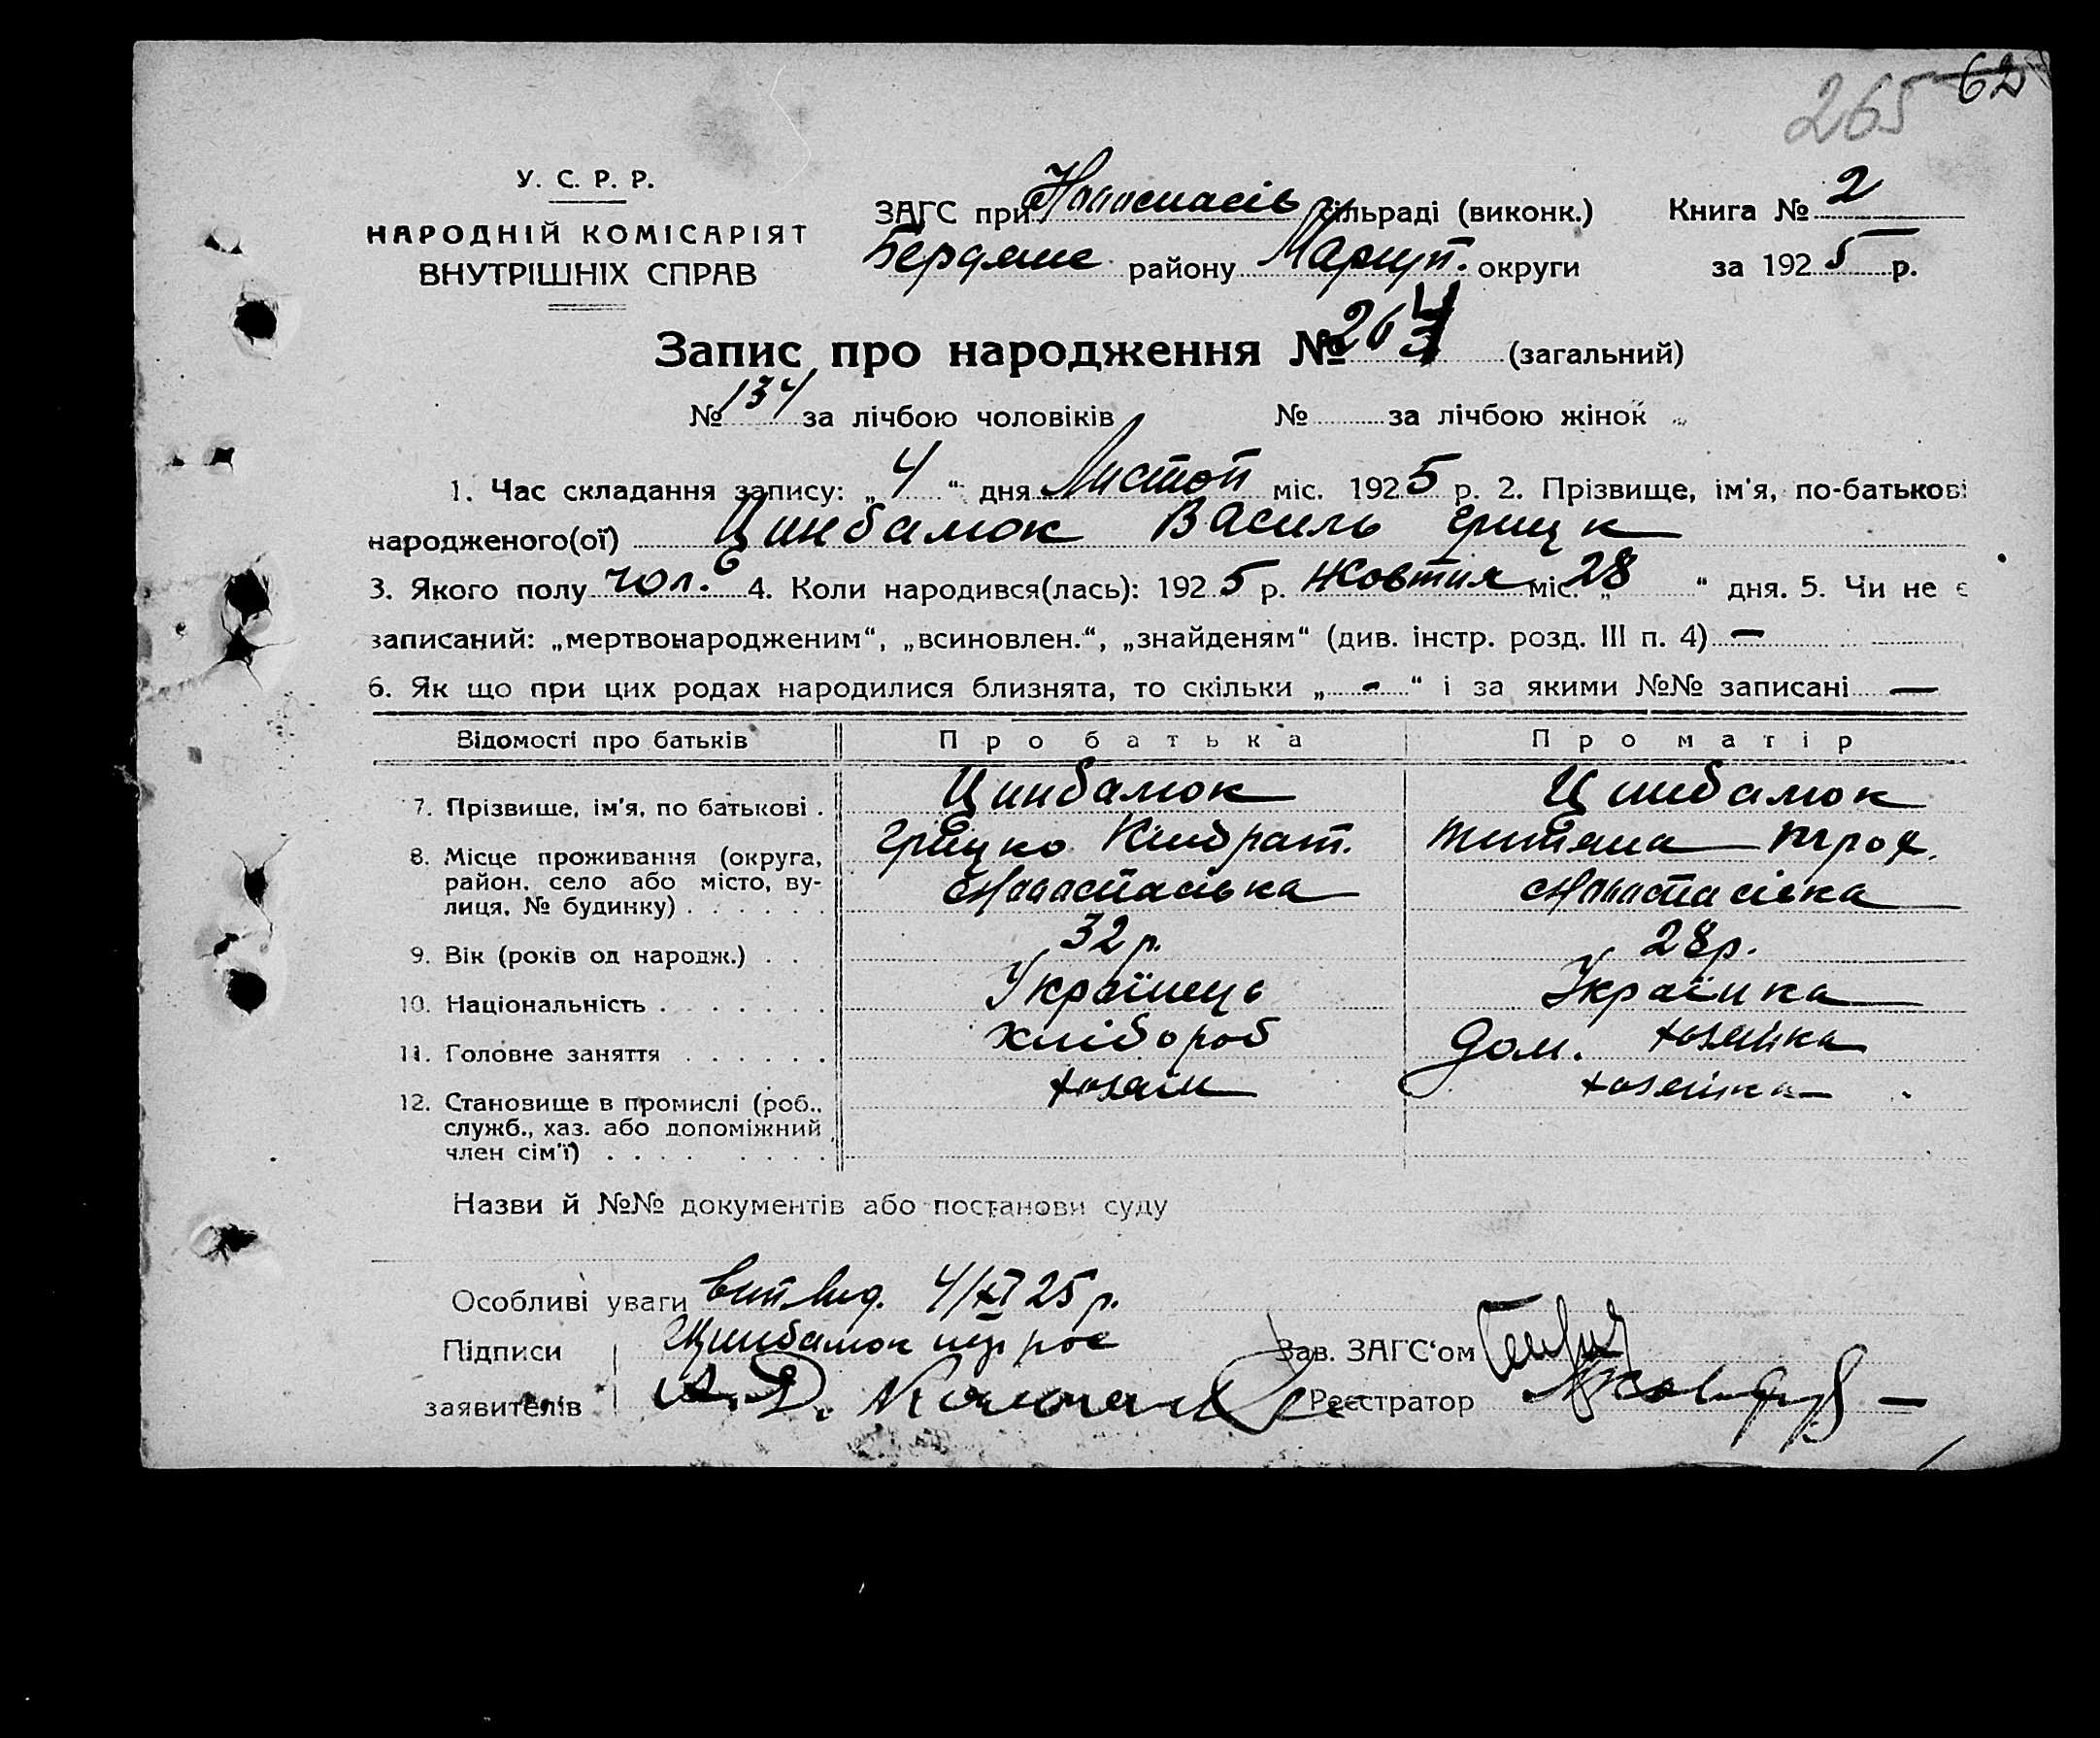 265 62
У. С. Р. Р.
НАРОДНІЙ КОМІСАРІЯТ
ВНУТРІШНІХ СПРАВ
ЗАГС при Новоспасів сільраді (виконк.) Книга № 2
Бердянс району Маріуп. округи за 1925 р.
Запис про народження № 264 (загальний)
№ 134 за лічбою чоловіків № за лічбою жінок
1. Час складання запису: „ 4 “ дня Листоп міс. 1925 р. 2. Прізвище, ім'я, по-батькові
народженого(ої) Цинбалюк Василь Грицк
3. Якого полу чол. 4. Коли народився(лась): 1925 р. Жовтня міс. „ 28 “ дня. 5. Чи не є
записаний: „мертвонародженим“, „всиновлен.“, „знайденям“ (див. інстр. розд. III п. 4) —
6. Як що при цих родах народилися близнята, то скільки „ - “ і за якими №№ записані —
Відомості про батьків Про батька Про матір
7. Прізвище, ім'я, по батькові . Цинбалюк Цинбалюк
Грицко Киндрат. Титяна Троф.
8. Місце проживання (округа,
район, село або місто, ву-
лиця, № будинку) . . . . . . Новоспасівка Новоспасівка
9. Вік (років од народж.) . . . 32 р. 28 р.
10. Національність . . . . . . . Українець Українка
11. Головне заняття . . . . . . Хлібороб Дом. хозяйка
12. Становище в промислі (роб., хозяін хозяйка
служб., хаз. або допоміжний
член сім'ї) . . . . . . . .
Назви й №№ документів або постанови суду
Особливі уваги 4/XI 25 р.
Підписи Цинбалюк Зав. ЗАГС‘ом
заявителів Реєстратор